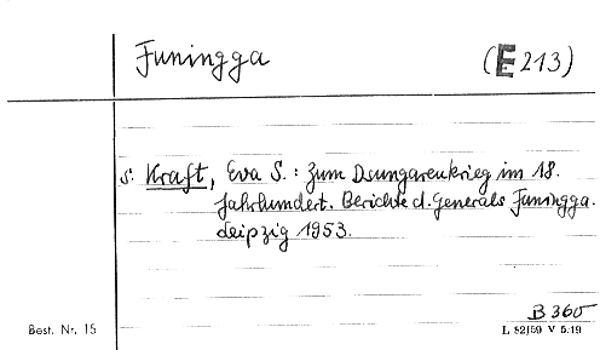 Funingga (E 213)
s. Kraft, Eva S.: Zum Dsungarenkrieg im 18.
Jahrhundert. Berichte d. Generals Funingga.
Leipzig 1953.
B 360
Best. Nr. 15 L 52/59 V 5:19